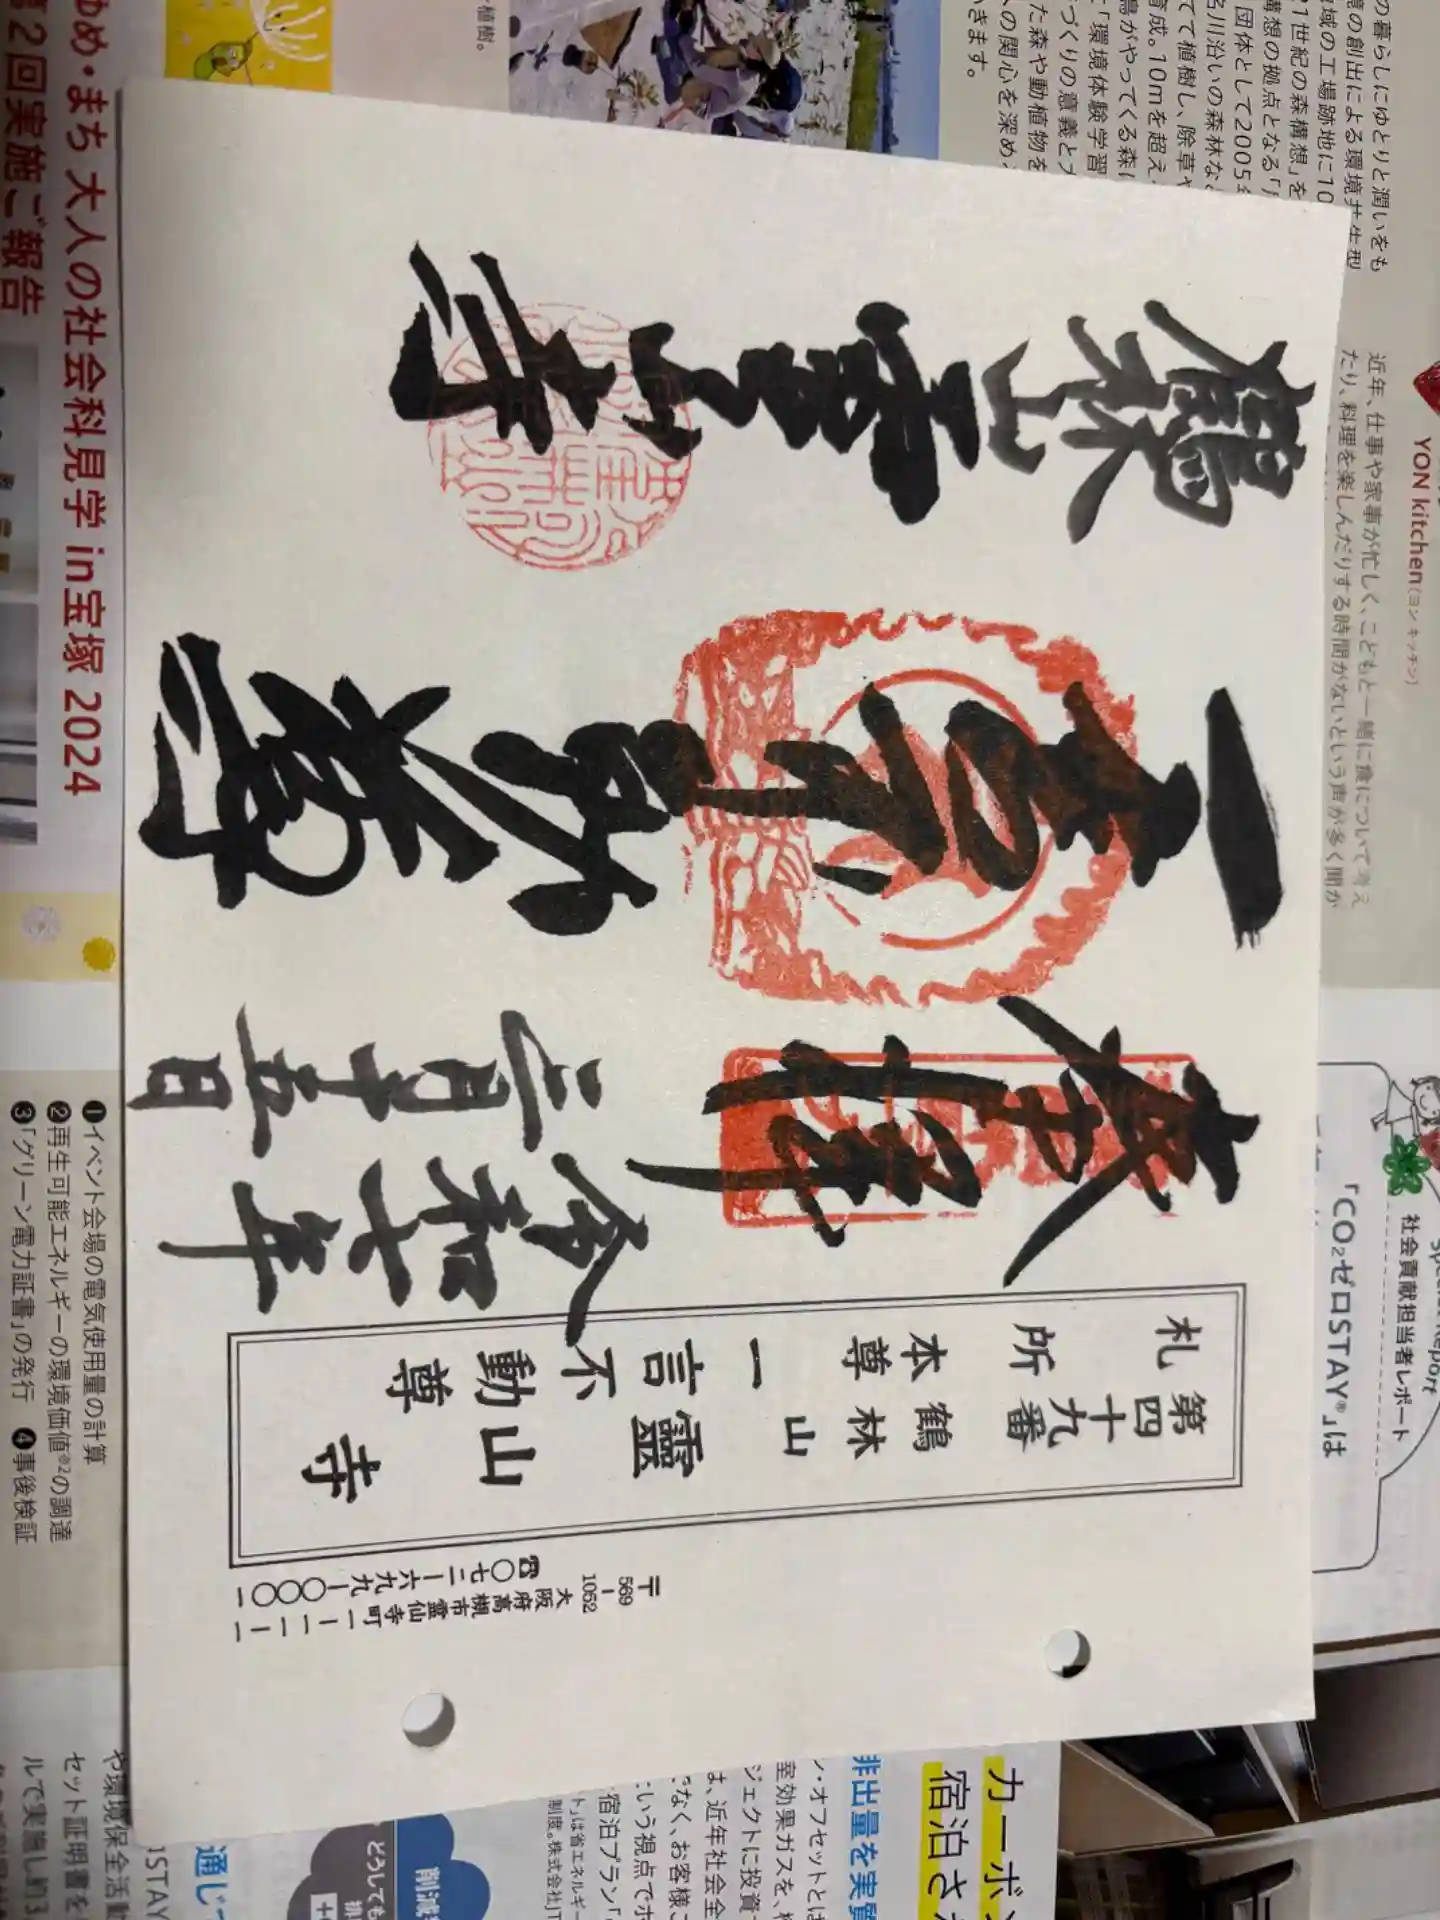 奉拝
令和七年
二月十五日
一言不動尊
鶴林山
霊山寺
札所
第四十九番
本尊
鶴林山
一言不動尊
靈山寺
〒569-1052
大阪府高槻市霊仙寺町一-二-一-一
☎〇七二-六九九-〇〇〇一
ゆめ・まち 大人の社会科見学 in宝塚 2024
第2回実施ご報告
❶イベント会場の電気使用量の計算
❷再生可能エネルギーの環境価値※2の調達
❸「グリーン電力証書」の発行 ❹事後検証
植樹。
の暮らしにゆとりと潤いをも
境の創出による環境共生型
域の工場跡地に10
21世紀の森構想」を
構想の拠点となる「
団体として2005年
名川沿いの森林など
てて植樹し、除草や
育成。10mを超え
鳥がやってくる森に
「環境体験学習
づくりの意義と
た森や動植物を
への関心を深め
きます。
YON kitchen（ヨンキッチン）
近年、仕事や家事が忙しく、こどもと一緒に食について考え
たり、料理を楽しんだりする時間がないという声が多く聞か
Special Report
社会貢献担当者レポート
「CO₂ゼロSTAY®」は
カーボン
宿泊さ
排出量を実質
ン・オフセットとは
室効果ガスを、
ジェクトに投資
は、近年社会全
でなく、お客様
という視点でホ
宿泊プラン「
ト」は省エネルギー
制度。株式会社JT
削減
どうしても
通じ
STAY
や環境保全活動
セット証明書を
ルで実施し約3